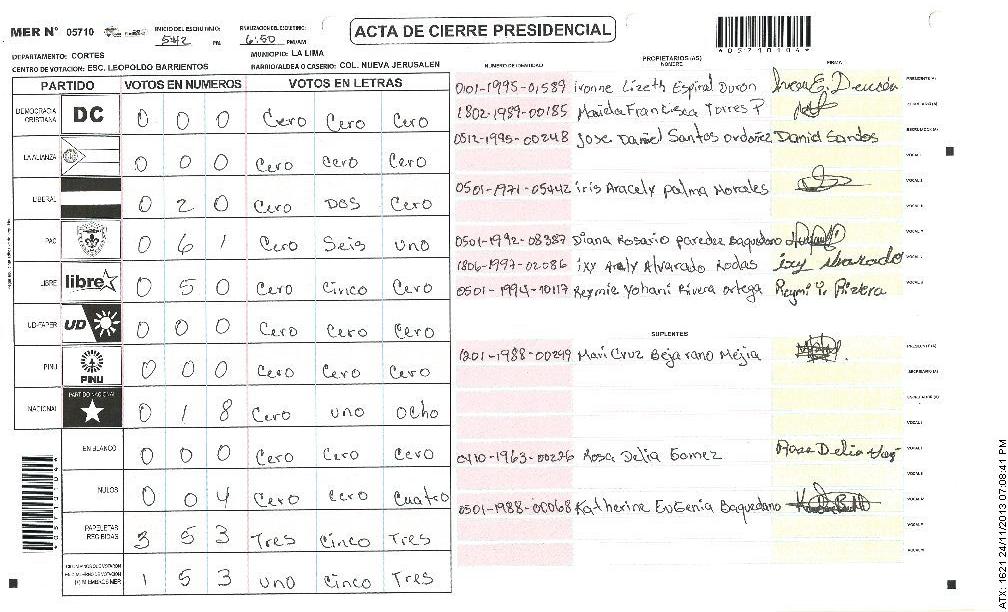 MER N° 05710
INICIO DEL ESCRUTINIO: 5:42 PM
FINALIZACION DEL ESCRUTINIO: 6:50 PM/AM
ACTA DE CIERRE PRESIDENCIAL
*05710104*
DEPARTAMENTO: CORTES
MUNICIPIO: LA LIMA
CENTRO DE VOTACION: ESC. LEOPOLDO BARRIENTOS
BARRIO/ALDEA O CASERIO: COL. NUEVA JERUSALEN
PARTIDO VOTOS EN NUMEROS VOTOS EN LETRAS
DEMOCRACIA CRISTIANA DC 0 0 0 Cero Cero Cero
LA ALIANZA 0 0 0 Cero Cero Cero
LIBERAL 0 2 0 Cero DOS Cero
PAC 0 6 1 Cero Seis uno
LIBRE libre 0 5 0 Cero Cinco Cero
UD-FAPER UD 0 0 0 Cero Cero Cero
PINU PINU 0 0 0 Cero Cero Cero
NACIONAL PARTIDO NACIONAL 0 1 8 Cero uno ocho
EN BLANCO 0 0 0 Cero Cero Cero
NULOS 0 0 4 Cero Cero Cuatro
PAPELETAS RECIBIDAS 3 5 3 Tres Cinco Tres
1 5 3 uno Cinco Tres
NUMERO DE IDENTIDAD PROPIETARIOS (AS) NOMBRE FIRMA
0101-1995-01589 Ivonne Lizeth Espinal Duron PRESIDENTE (A)
1802-1989-00185 Maida Francisca Torres P SECRETARIO (A)
0512-1995-00248 Jose Daniel Santos ordoñez Daniel Santos ESCRUTADOR (A)
VOCAL I
0501-1971-05442 iris Aracely palma Morales VOCAL II
0501-1992-08387 Diana Rosario paredez Baquedano
1806-1997-02086 ixy Arely Alvarado Rodas ixy Alvarado
0501-1994-10117 Reymie Yohani Rivera ortega Reymi Y. Rivera
SUPLENTES
1201-1988-00299 Mari Cruz Bejarano Mejia PRESIDENTE (A)
SECRETARIO (A)
ESCRUTADOR (A)
VOCAL I
0410-1963-00226 Rosa Delia Gomez Rosa Delia
0501-1988-00068 Katherine EuGenia Baquedano
ATX: 1621 24/11/2013 07:08:41 PM